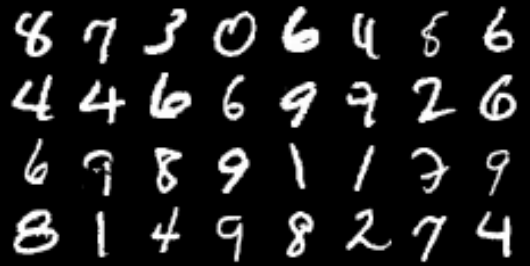 8 7 3 0 6 4 8 6
4 4 6 6 9 9 2 6
6 9 8 9 1 1 9
8 1 4 9 8 2 7 4